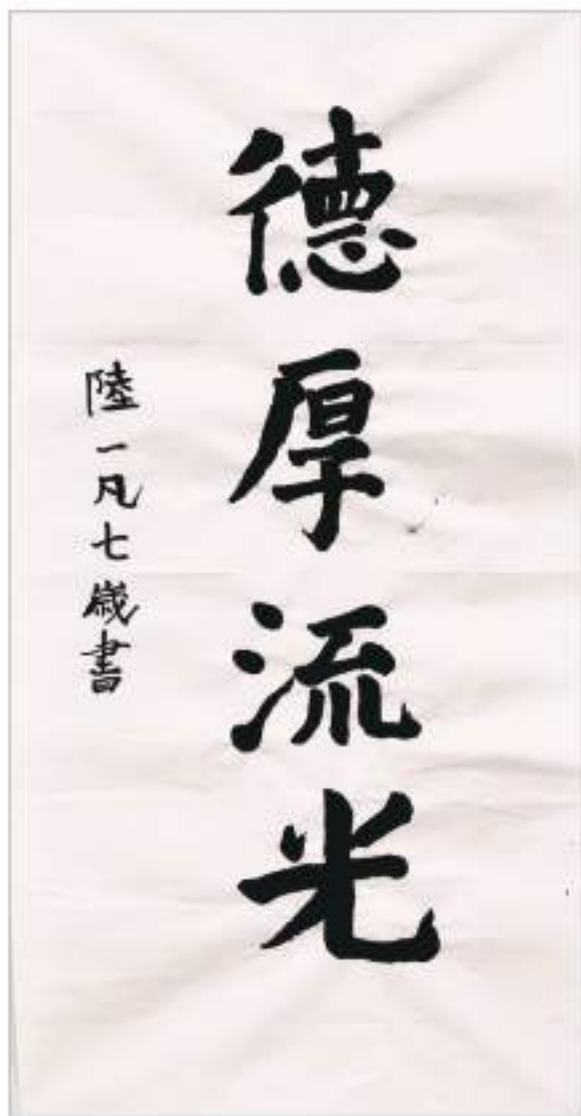 德厚流光
陸一凡七歲書